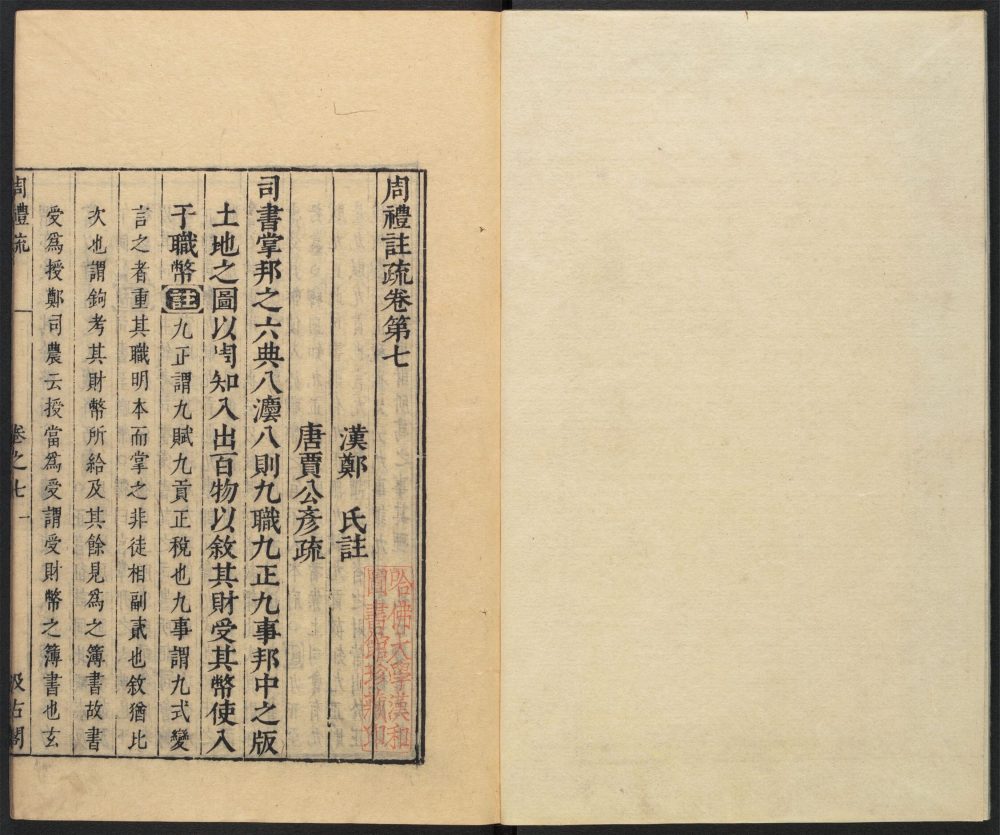 周禮註疏卷第七
漢鄭　氏註
唐賈公彥疏
司書掌邦之六典八灋八則九職九正九事邦中之版
土地之圖以周知入出百物以敘其財受其幣使入
于職幣註九正謂九賦九貢正稅也九事謂九式變
言之者重其職明本而掌之非徒相副貳也敘猶比
次也謂鉤考其財幣所給及其餘見為之簿書故書
受為授鄭司農云授當為受謂受財幣之簿書也玄
周禮疏　卷之七　一　汲古閣
哈佛大學漢和
圖書館珍藏印